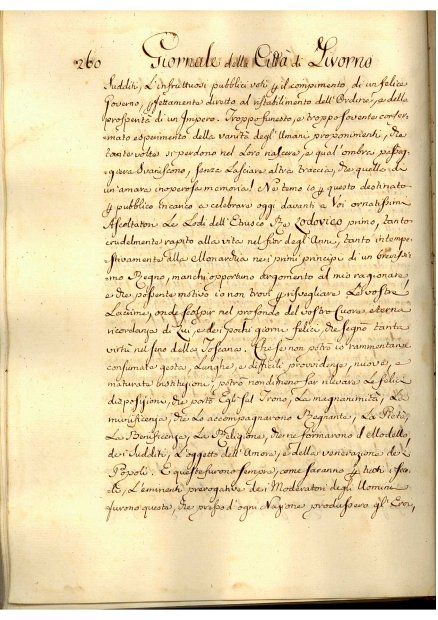 260 Giornale della Città di Livorno
Sudditi, L'infruttuosi pubblici voti p il compimento di un felice
Governo, p fettamente diretto al ristabilimento dell'Ordine, e della
prosperità di un Impero. Troppo funesto, e troppo sovente confer-
mato esperimento della vanità degl'Umani proponimenti, che
tante volte si perdono nel Loro nascere, e qual'ombra passeg-
giera svaniscono, senza Lasciare altra traccia, che quella di
un'amara inoperosa memoria! Ne temo io p questo destinato
p pubblico Incarico a celebrare oggi davanti a Voi ornatissimi
Ascoltatori Le Lodi dell'Etrusco Re Lodovico primo, tanto
crudelmente rapito alla vita nel fior degl'Anni, tanto intempe-
stivamente alla Monarchia nei primi principi di un
mo Regno, manchi opportuno argomento al mio ragionare
e che possente motivo io non trovi p risvegliare Le vostre
Lacrime, onde scolpir nel profondo del vostro Cuore eterna
ricordanza di Lui, e dei pochi giorni felici, che segnò tanta
virtù nel seno della Toscana. Che se non potrò io rammentare
consumate gesta, Lunghe, e difficili providenze, nuove, e
maturate Instituzioni, potrò nondimeno far rilevare Le felici
disposizioni, che portò Egli sul Trono, La magnanimità, La
munificenza, che Lo accompagnarono Regnante, La Pietà,
La Beneficenza, La Religione, che ne formarono il Modello
dei Sudditi, L'oggetto dell'Amore, e della venerazione de
Popoli. E queste furono sempre, come saranno p tutti i seco-
li, L'eminenti prerogative dei Moderatori degli Uomini
furono queste, che presso d'ogni Nazione produssero gl'Eroi,